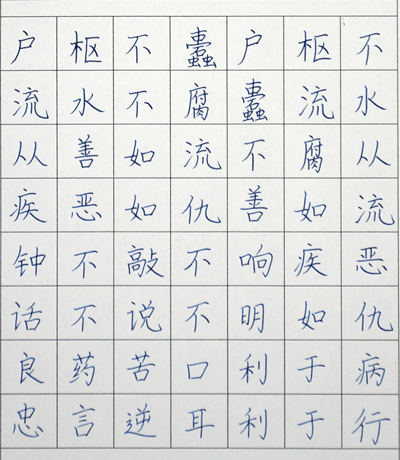 户枢不蠹户枢不
流水不腐蠹流水
从善如流不腐从
疾恶如仇善如流
钟不敲不响疾恶
话不说不明如仇
良药苦口利于病
忠言逆耳利于行